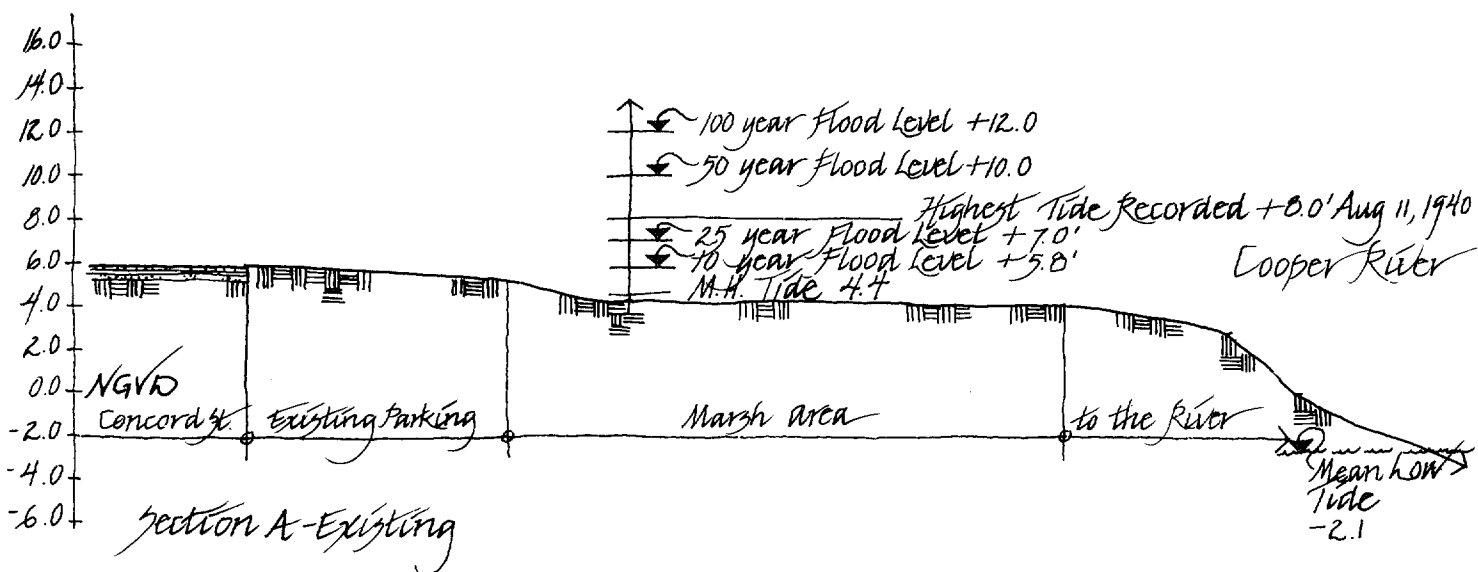 16.0
14.0
12.0
10.0
8.0
6.0
4.0
2.0
0.0
-2.0
-4.0
-6.0
100 year Flood Level +12.0
50 year Flood Level +10.0
Highest Tide Recorded +8.0' Aug 11, 1940
25 year Flood Level +7.0'
10 year Flood Level +5.8'
M.H. Tide 4.4
Cooper River
NGVD
Concord St.
Existing Parking
Marsh area
to the River
Mean Low
Tide
-2.1
Section A-Existing